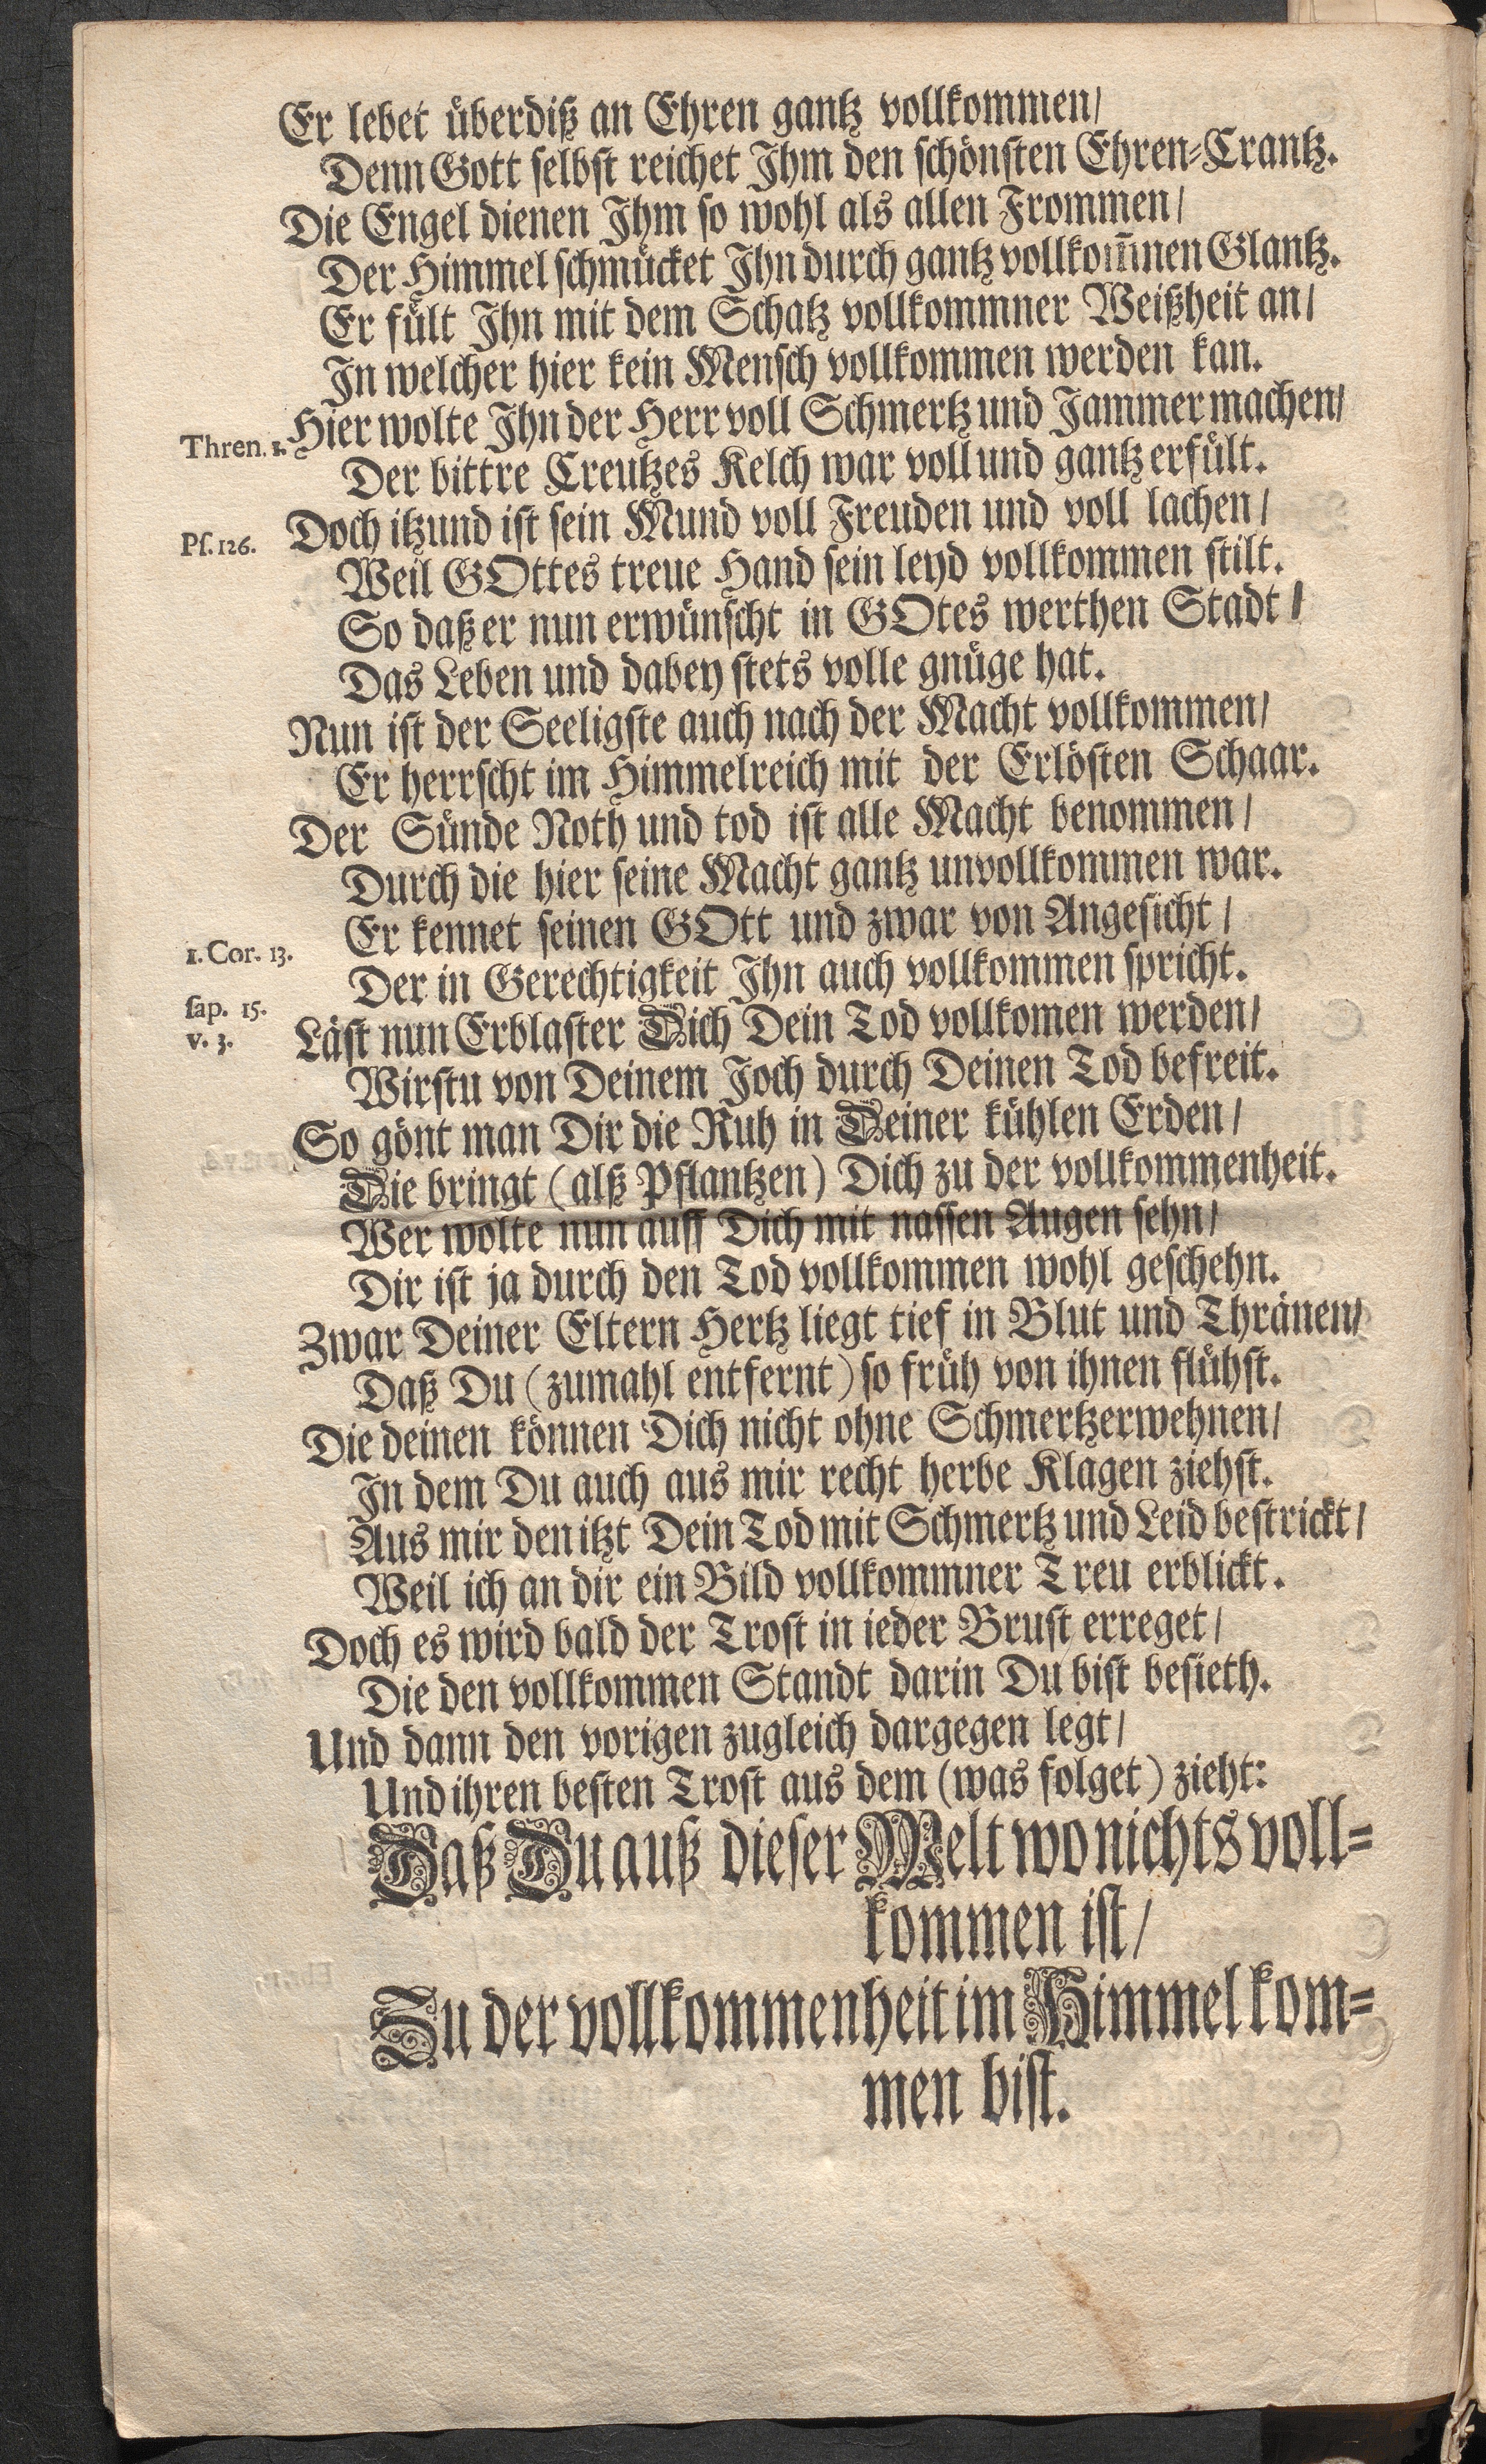 Er lebet überdiß an Ehren gantz vollkommen/
Denn Gott selbst reichet Ihm den schönsten Ehren-Crantz.
Die Engel dienen Ihm so wohl als allen Frommen/
Der Himmel schmücket Ihn durch gantz vollkom̅nen Glantz.
Er fült Ihn mit dem Schatz vollkommner Weißheit an/
In welcher hier kein Mensch vollkommen werden kan.
Thren. 1. Hier wolte Ihn der Herr voll Schmertz und Jammer machen/
Der bittre Creutzes Kelch war voll und gantz erfült.
Ps. 126. Doch itzund ist sein Mund voll Freuden und voll lachen/
Weil GOttes treue Hand sein leyd vollkommen stilt.
So daß er nun erwünscht in GOtes werthen Stadt/
Das Leben und dabey stets volle gnüge hat.
Nun ist der Seeligste auch nach der Macht vollkommen/
Er herrscht im Himmelreich mit der Erlösten Schaar.
Der Sünde Noth und tod ist alle Macht benommen/
Durch die hier seine Macht gantz unvollkommen war.
1. Cor. 13. Er kennet seinen GOtt und zwar von Angesicht/
sap. 15. Der in Gerechtigkeit Ihn auch vollkommen spricht.
v. 3. Läst nun Erblaster Dich Dein Tod vollkomen werden/
Wirstu von Deinem Joch durch Deinen Tod befreit.
So gönt man Dir die Ruh in Deiner kühlen Erden/
Die bringt (alß Pflantzen) Dich zu der vollkommenheit.
Wer wolte nun auff Dich mit nassen Augen sehn/
Dir ist ja durch den Tod vollkommen wohl geschehn.
Zwar Deiner Eltern Hertz liegt tief in Blut und Thränen/
Daß Du (zumahl entfernt) so früh von ihnen flühst.
Die deinen können Dich nicht ohne Schmertz erwehnen/
In dem Du auch aus mir recht herbe Klagen ziehst.
Aus mir den itzt Dein Tod mit Schmertz und Leid bestrickt/
Weil ich an dir ein Bild vollkommner Treu erblickt.
Doch es wird bald der Trost in ieder Brust erreget/
Die den vollkommen Standt darin Du bist besieth.
Und dann den vorigen zugleich dargegen legt/
Und ihren besten Trost aus dem (was folget) zieht:
Daß Du auß dieser Welt wo nichts voll-
kommen ist/
Zu der vollkommenheit im Himmel kom-
men bist.